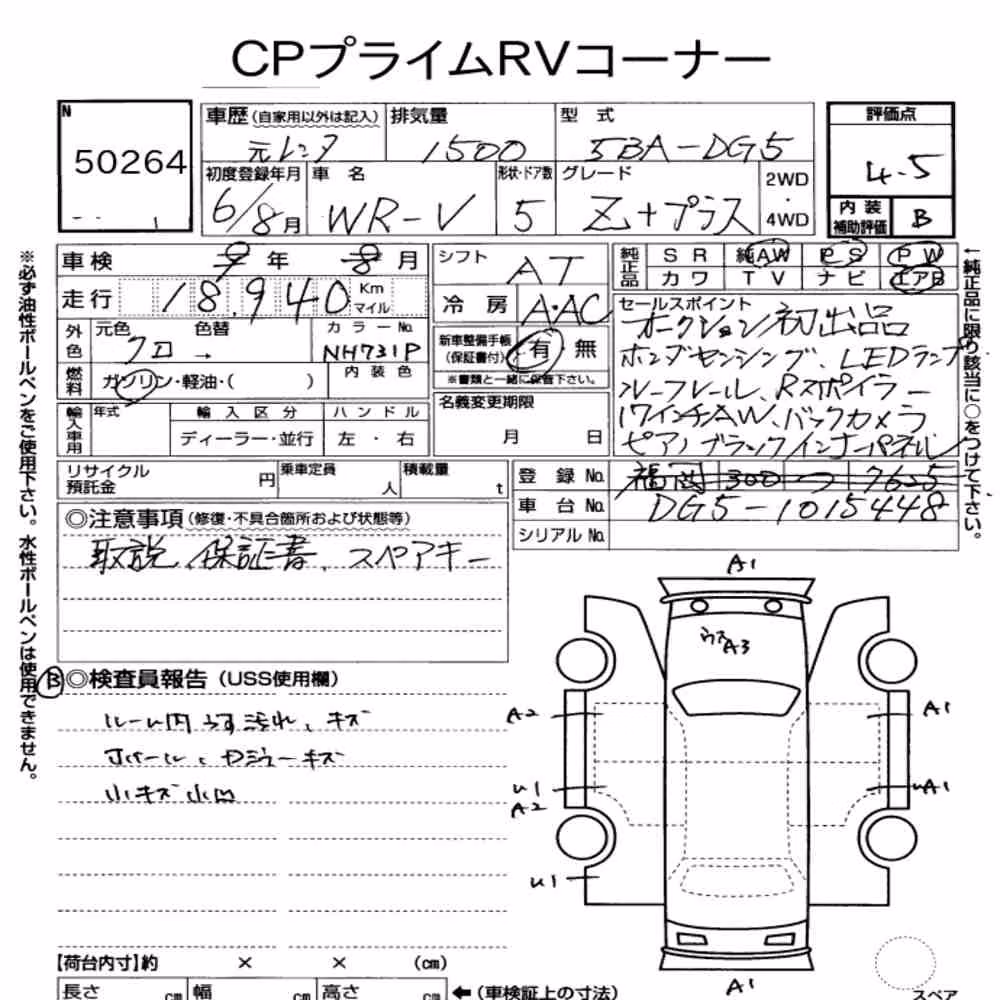 CPプライムRVコーナー
N
50264
車歴 (自家用以外は記入) 排気量 型式
元レンタ 1500 5BA-DG5
初度登録年月 車名 形状・ドア数 グレード
6/8月 WR-V 5 Z+プラス
2WD
4WD
評価点
4.5
内装補助評価 B
車検 9年 8月
走行 18,940 Km マイル
外色 元色 色替 カラーNo.
クロ → NH731P
燃料 ガソリン・軽油・( ) 内装色
輸入車用 年式 輸入区分 ハンドル
ディーラー・並行 左・右
シフト AT
冷房 A・AC
新車整備手帳(保証書付) 有 無
※書類と一緒に保管下さい。
名義変更期限
月 日
純正品 SR 純AW PS PW
カワ TV ナビ エアB
セールスポイント
オークション初出品
ホンダセンシング、LEDランプ
ルーフレール、Rスポイラー
17インチAW、バックカメラ
ピアノブラックインナーパネル
リサイクル預託金 円 乗車定員 人 積載量 t
登録No. 福岡 300 つ 7625
車台No. DG5-1015448
シリアルNo.
◎注意事項 (修復・不具合箇所および状態等)
取説、保証書、スペアキー
B ◎検査員報告 (USS使用欄)
ルーム内うす汚れ、キズ
小キズ小凹
※必ず油性ボールペンをご使用下さい。水性ボールペンは使用できません。
←純正品に限り該当に○をつけて下さい。
A1
ウスA3
A2 A1
U1 UA1
A2
U1
A1
【荷台内寸】約 × × (cm)
長さ cm 幅 cm 高さ cm ←(車検証上の寸法)
スペア